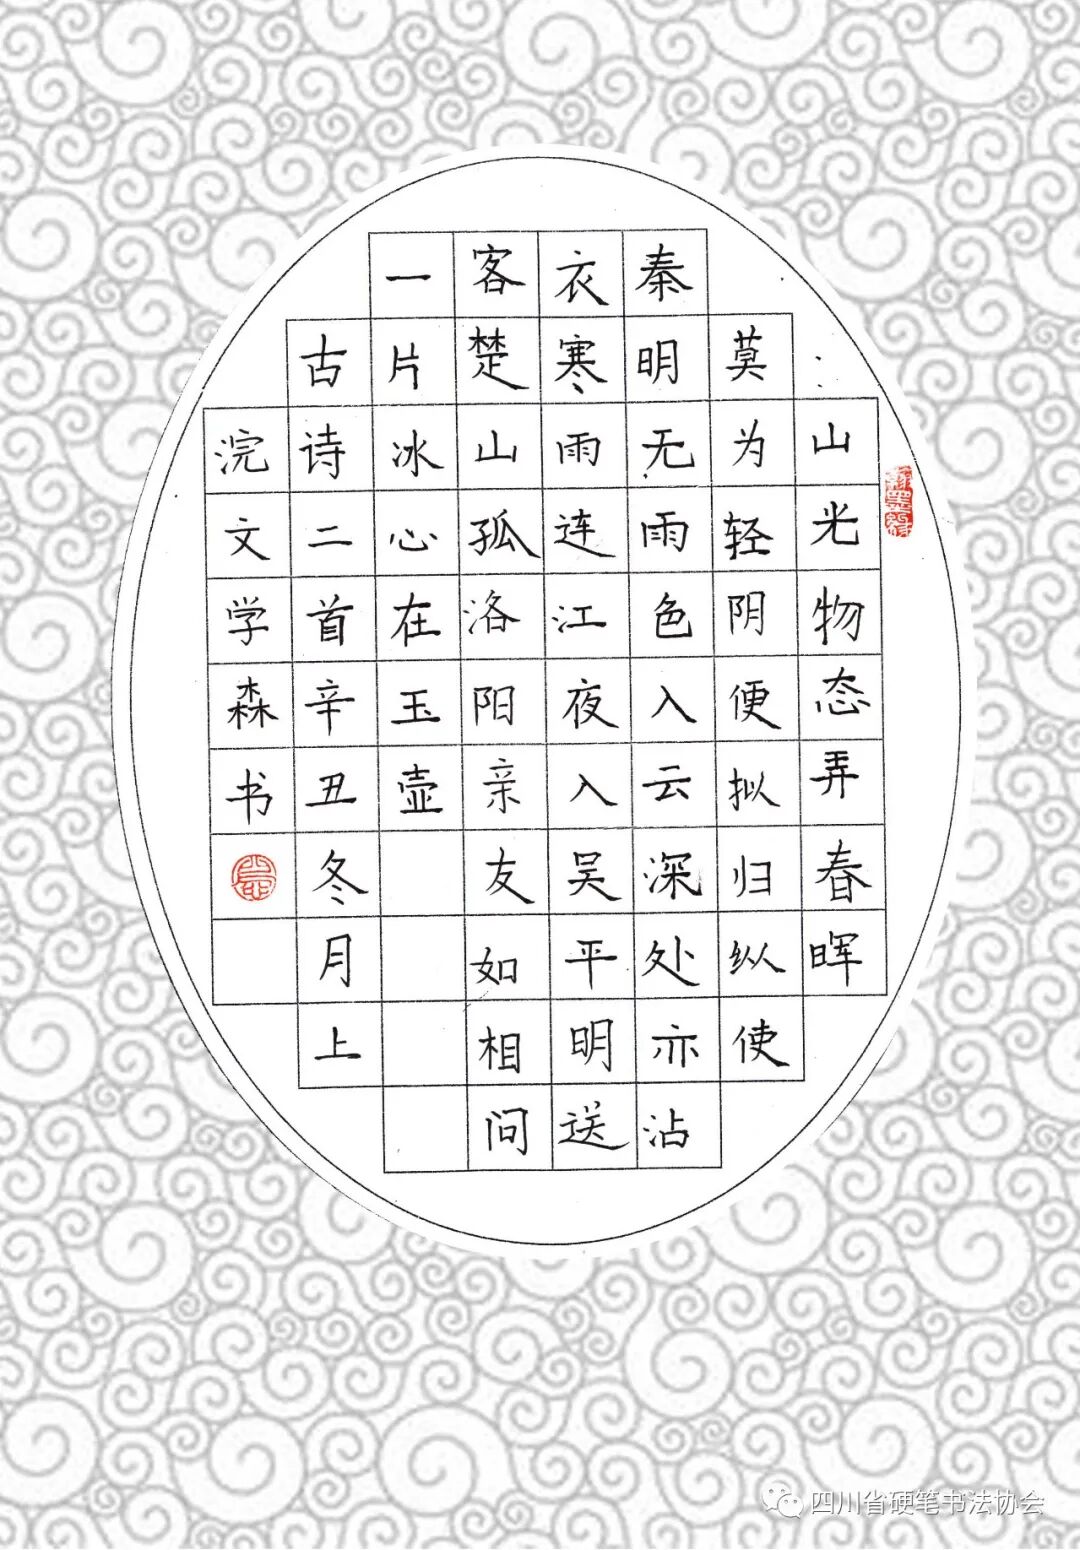 山光物态弄春晖
莫为轻阴便拟归纵使
秦明无雨色入云深处亦沾
衣寒雨连江夜入吴平明送
客楚山孤洛阳亲友如相问
一片冰心在玉壶
古诗二首辛丑冬月上
浣文学森书
翰墨缘
四川省硬笔书法协会